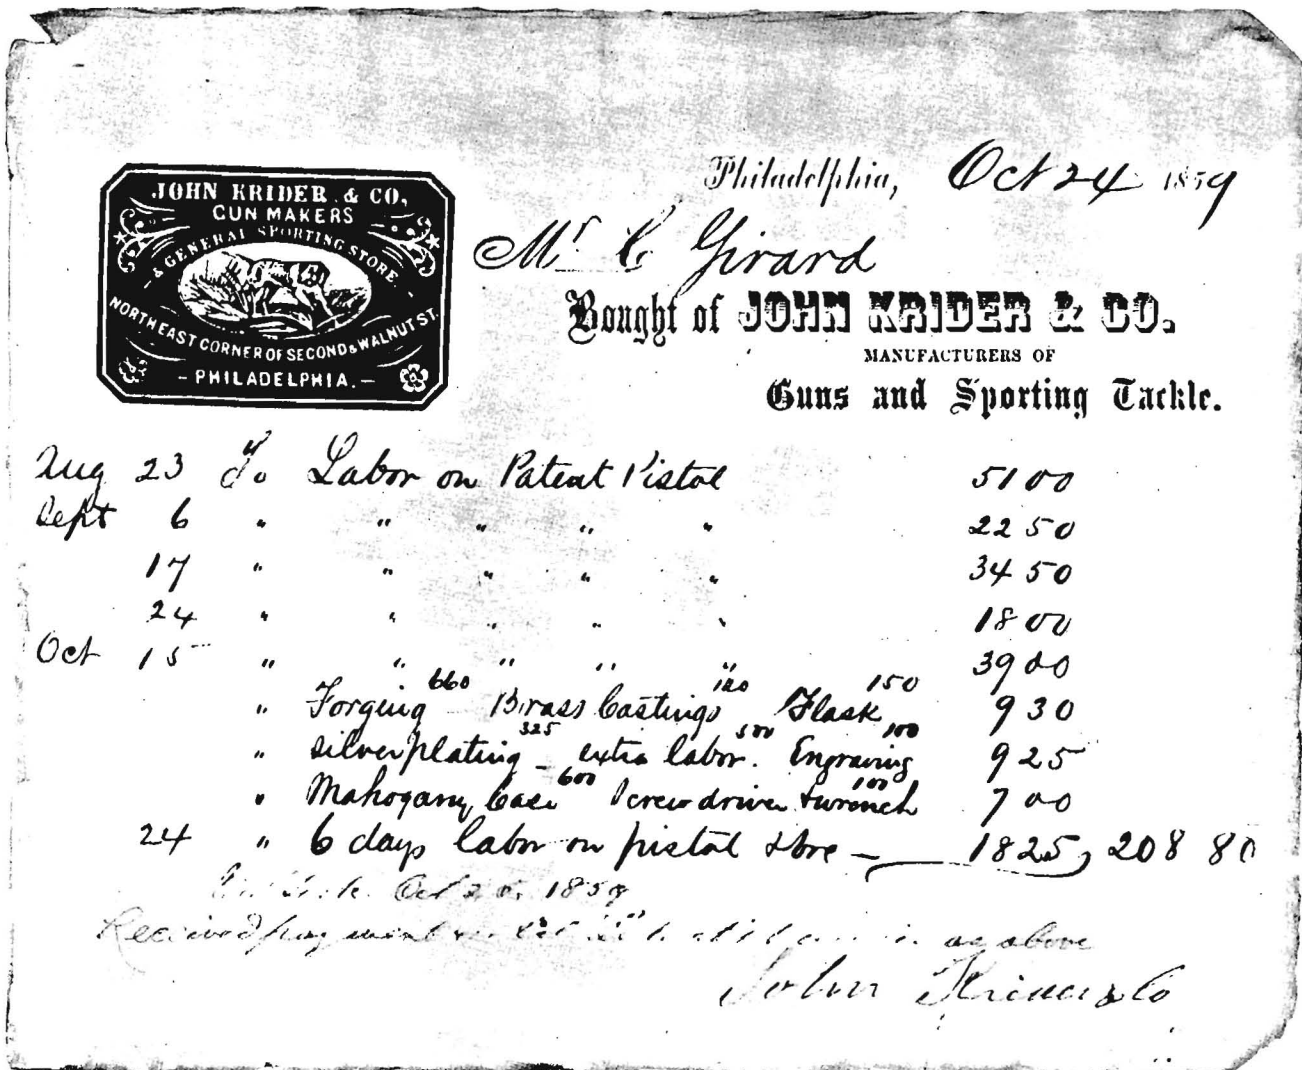 JOHN KRIDER & CO,
GUN MAKERS
& GENERAL SPORTING STORE
NORTH EAST CORNER OF SECOND & WALNUT ST.
- PHILADELPHIA. -
Philadelphia, Oct 24 1859
Mr C Girard
Bought of JOHN KRIDER & CO.
MANUFACTURERS OF
Guns and Sporting Tackle.
Aug 23 To Labor on Patent Pistol 51 00
Sept 6 " " " " " 22 50
17 " " " " " 34 50
24 " " " " " 18 00
Oct 15 " " " " " 39 00
" Forging 660 Brass Castings 120 Flask 150 9 30
" Silver plating 325 - extra labor. 500 Engraving 100 9 25
" Mahogany Case 600 Screwdriver & wrench 100 7 00
24 " 6 days labor on pistol & bore - 18 25, 208 80
Oct 1859
Received payment as above
John Krider & Co